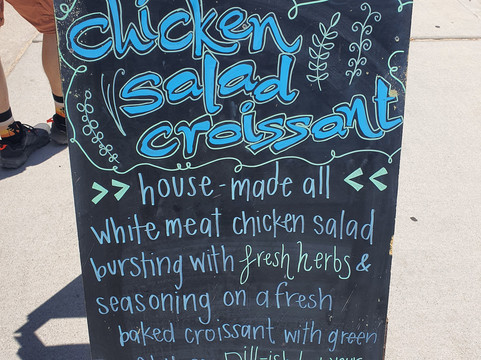 chicken
salad
croissant
>> house-made all <<
white meat chicken salad
bursting with fresh herbs &
seasoning on a fresh
baked croissant with green